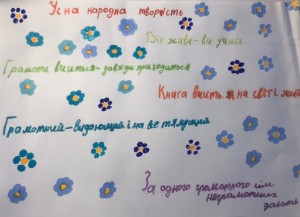 Усна народна творчість
Вік живи – вік учись.
Грамоти вчиться – завжди пригодиться
Книга вчить як на світі жить
Грамотний – видющий і на все тямущий
За одного грамотного сім
неграмотних
дають